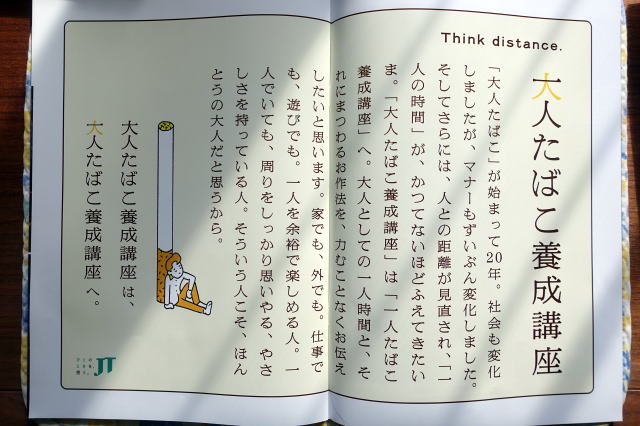 Think distance.
大人たばこ養成講座
「大人たばこ」が始まって20年。社会も変化
しましたが、マナーもずいぶん変化しました。
そしてさらには、人との距離が見直され、「一
人の時間」が、かつてないほどふえてきたい
ま。「大人たばこ養成講座」は「一人たばこ
養成講座」へ。大人としての一人時間と、そ
れにまつわるお作法を、力むことなくお伝え
したいと思います。家でも、外でも。仕事で
も、遊びでも。一人を余裕で楽しめる人。一
人でいても、周りをしっかり思いやる、やさ
しさを持っている人。そういう人こそ、ほん
とうの大人だと思うから。
大人たばこ養成講座は、
大人たばこ養成講座へ。
ひとの
ときを、
想う。
JT